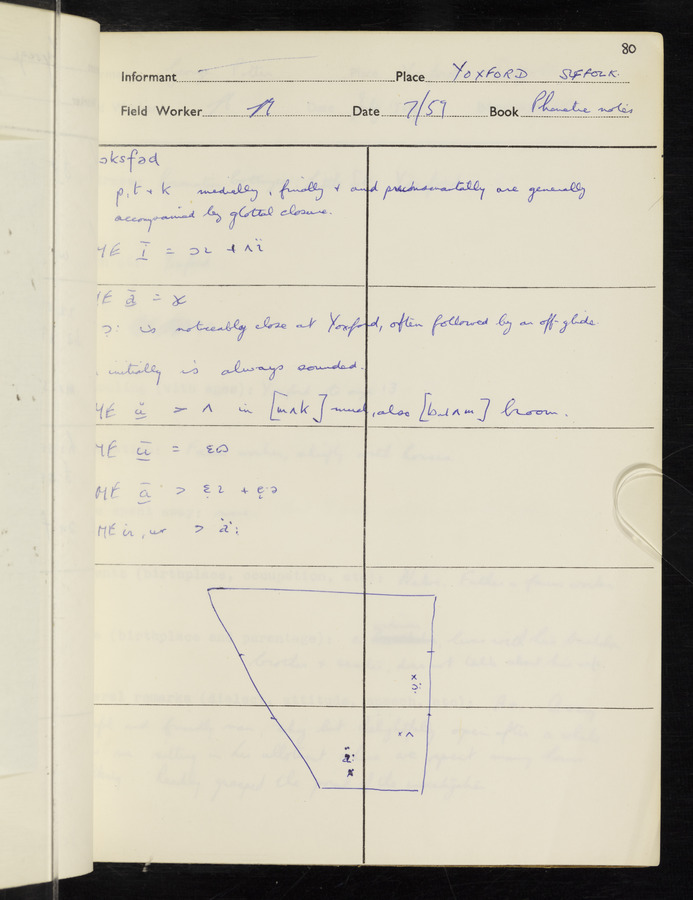 80
Informant Place YOXFORD SUFFOLK.
Field Worker Date 7/59 Book Phonetic notes
ɔksfəd
p, t + k medially, finally + and preconsonantally are generally
accompanied by glottal closure.
ME ī = ɔɩ + ʌï
ME ā̆ =
ɔ: is noticeably close at Yoxford, often followed by an off-glide.
initially is always sounded.
ME ŭ > ʌ in [mʌk] muck, also [bɹʌm] broom.
ME ū = ɛɷ
ME ā > ɛ̣ɩ + ẹə
ME ir, ur > ä:
x
ɔ̣:
x ʌ
ä:
x